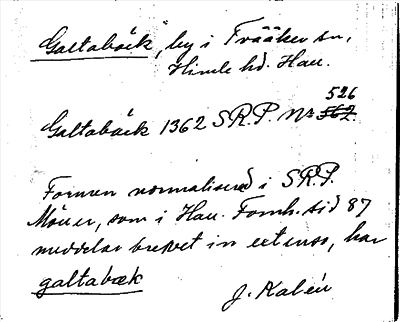 Galtabäck, by i Tvååker sn,
Himle hd. Hall.
526
Galtabäck 1362 SRP. Nr 562.
Formen normaliserad i SRP.
Möller, som i Hall. Fornh. sid 87
meddelar brevet in extenso, har
galtabæk
J. Kalén